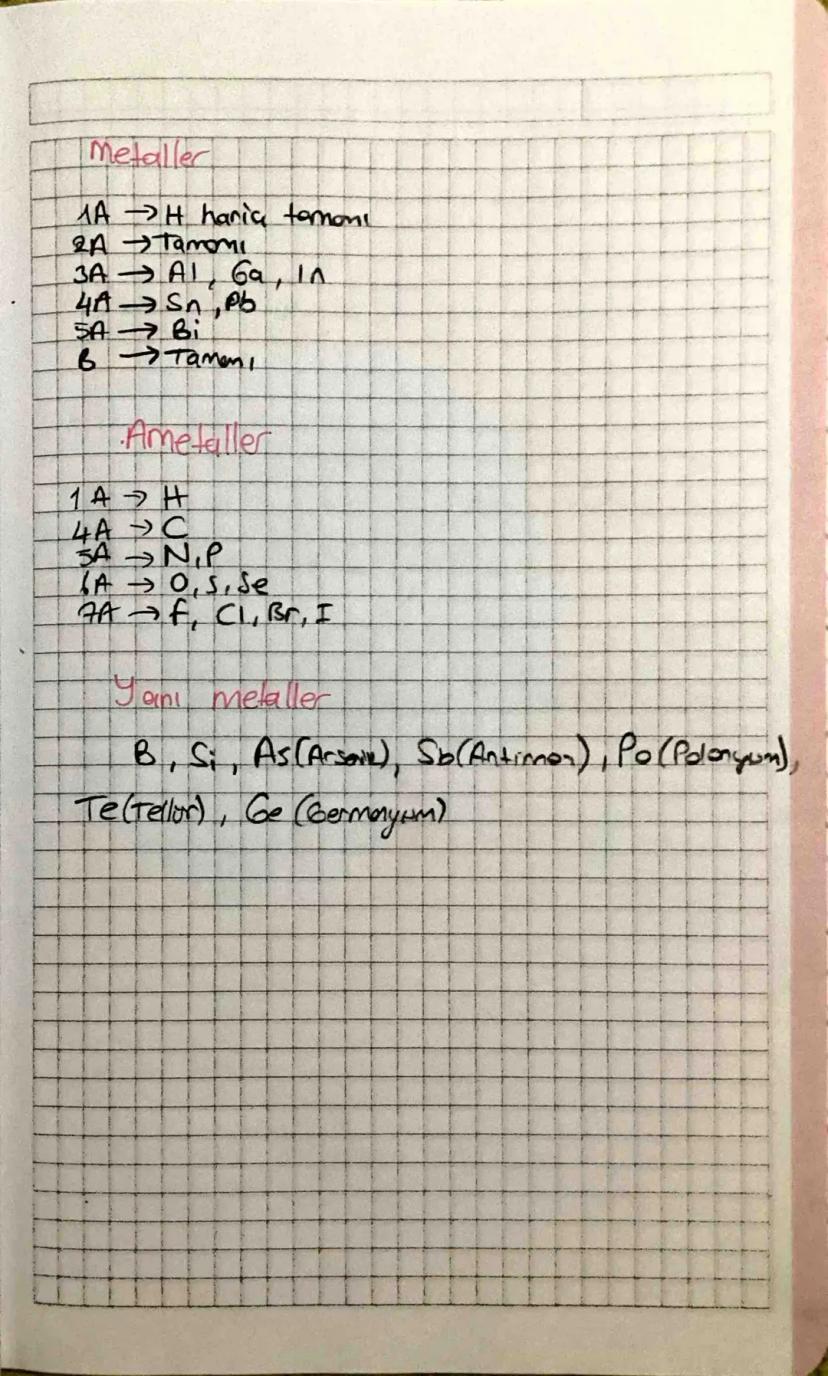 Metaller
1A → H hariç tamamı
2A → Tamamı
3A → Al, Ga, In
4A → Sn, Pb
5A → Bi
B → Tamamı
Ametaller
1A → H
4A → C
5A → N, P
6A → O, S, Se
7A → F, Cl, Br, I
Yarı metaller
B, Si, As(Arsenik), Sb(Antimon), Po(Polonyum),
Te(Tellür), Ge (Germanyum)